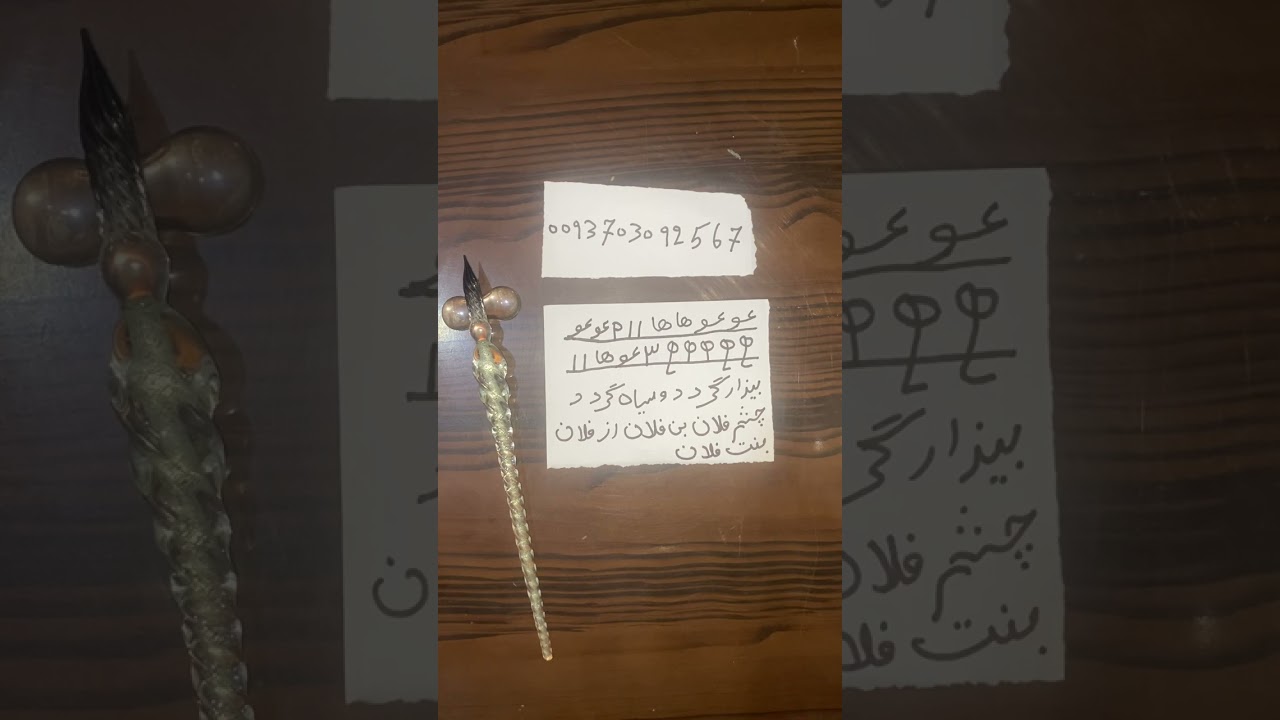 0093703092567
عو عو هاها ۱۱ ۹ عو عو
۳ عو ها ۱۱
بیزار گردد و سیاه گردد
چشم فلان بن فلان از فلان
بنت فلان